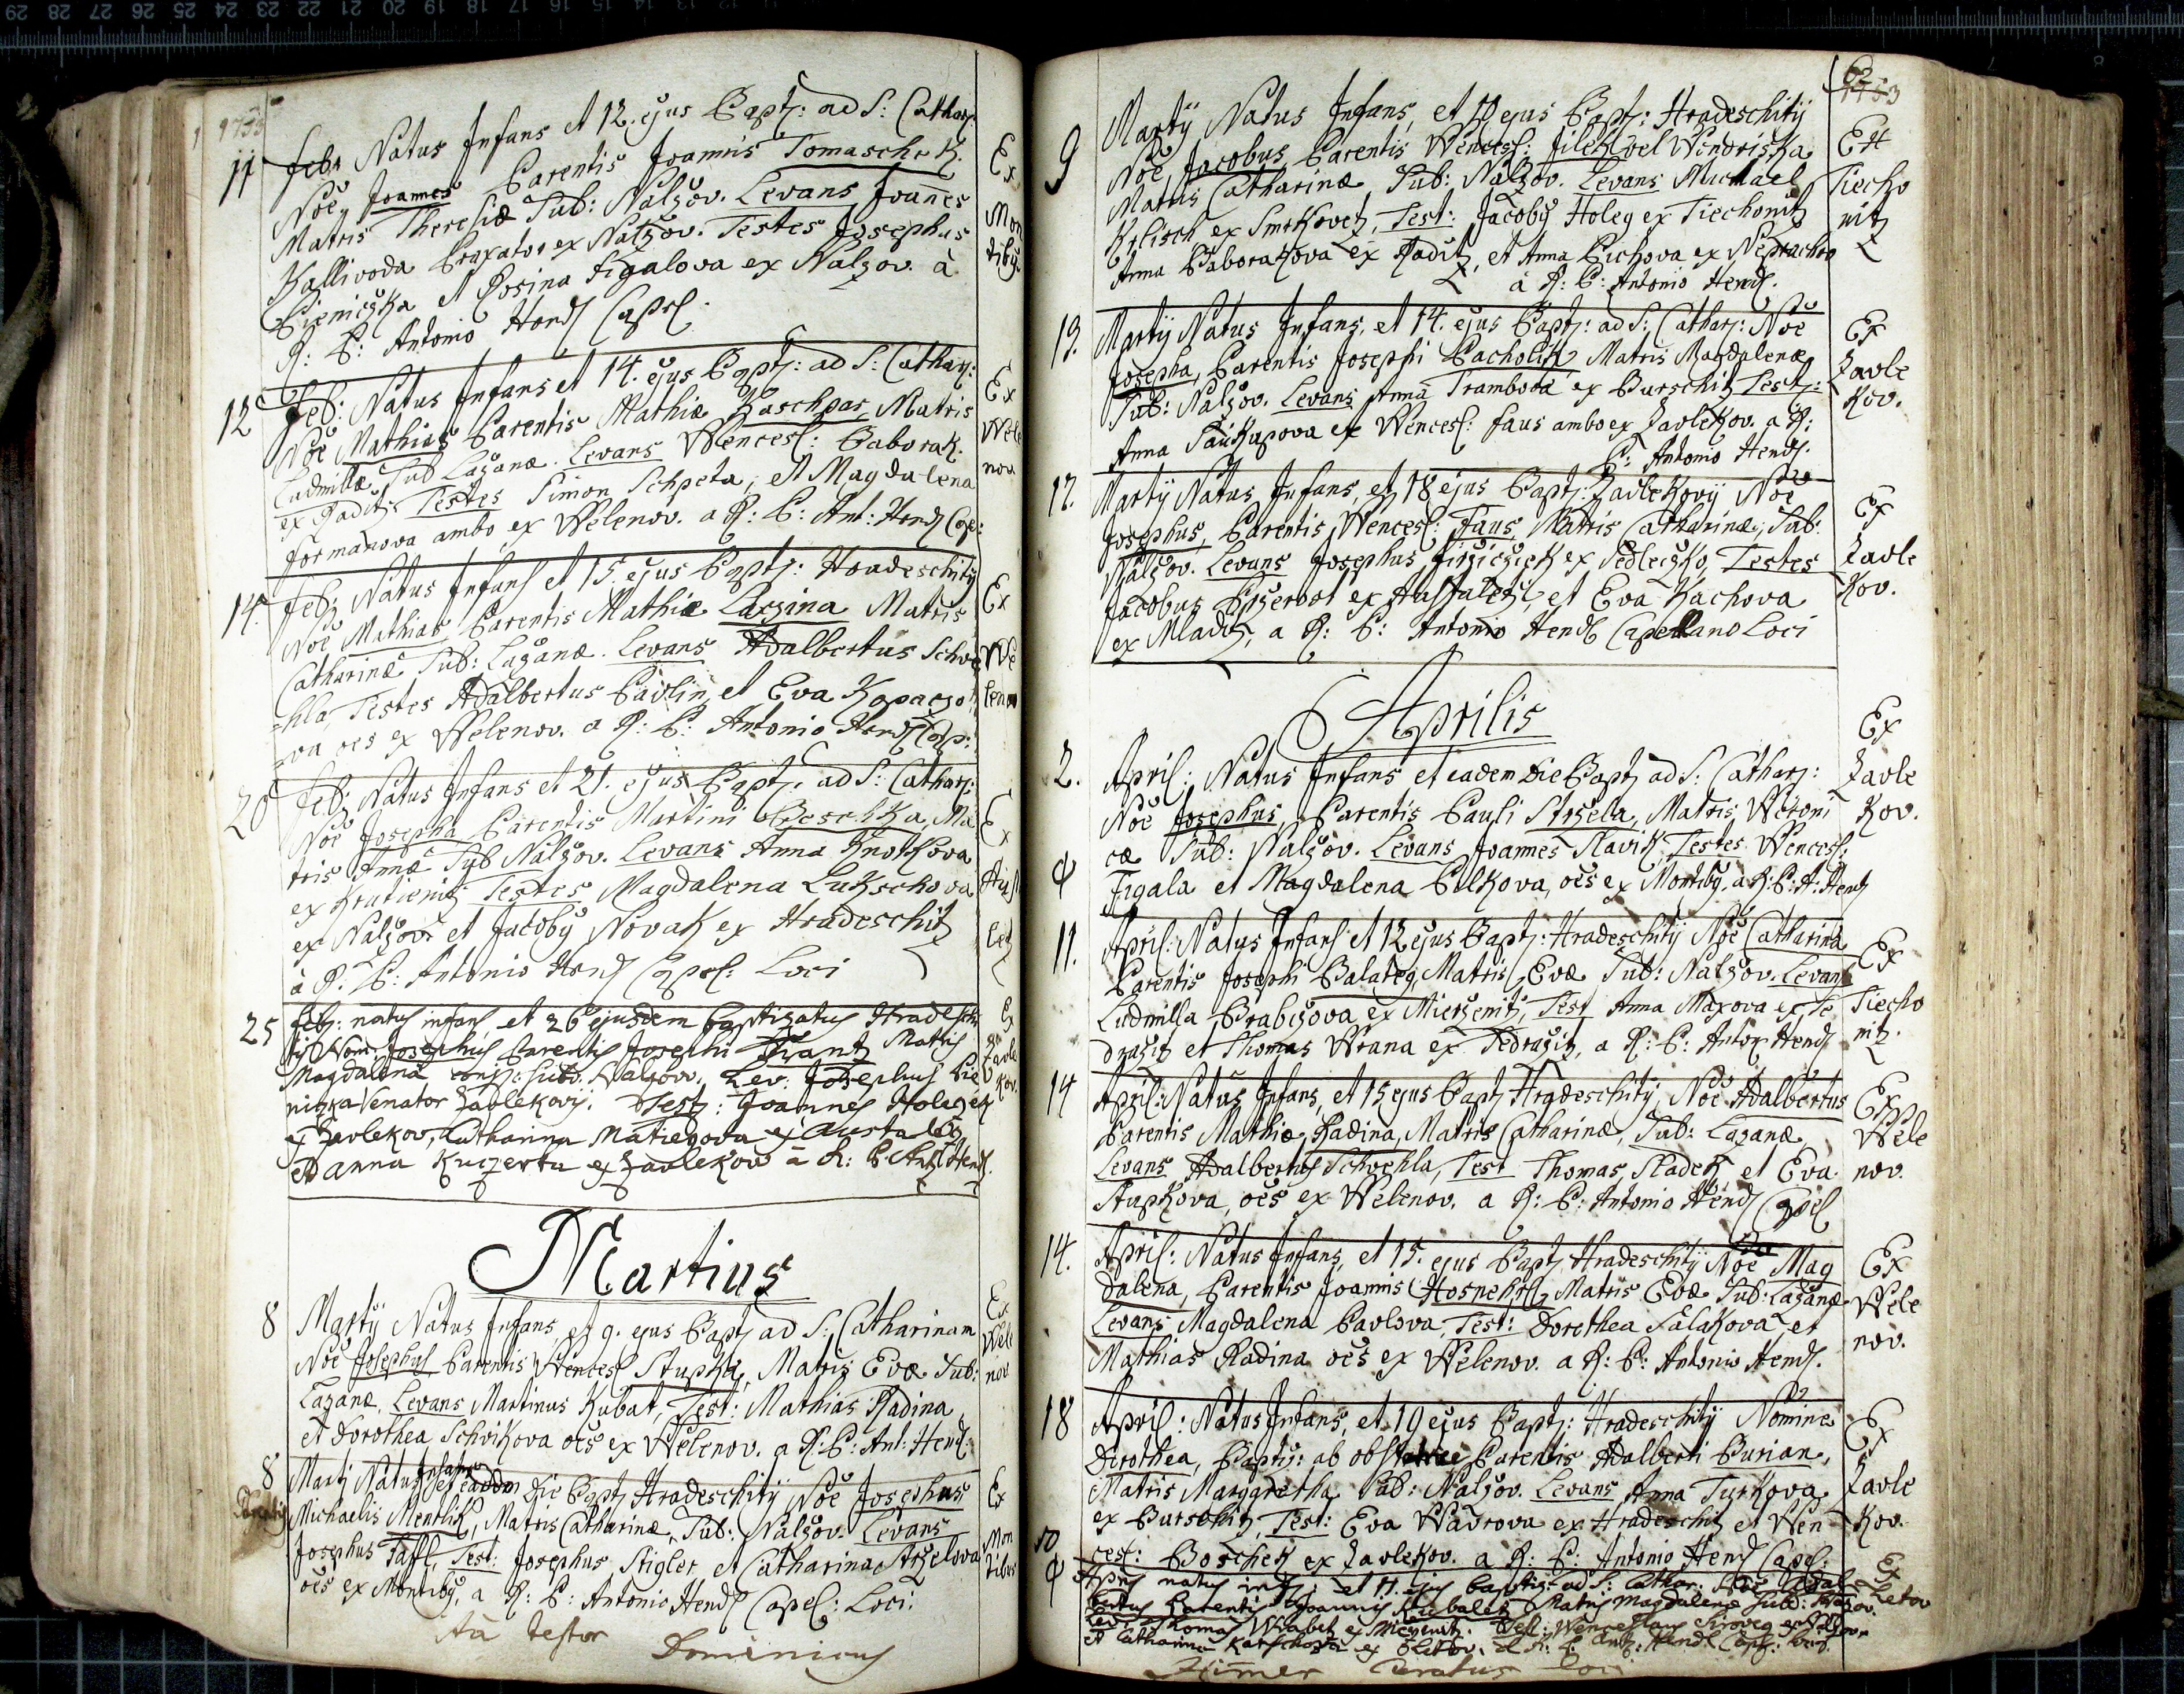 1753
11 Feb: Natus Infans et 12. ejus Bapt: ad S: Cathar:
Noe Joannes Parentis Joannis Tomaschek. Ex
Matris Theresiæ Sub: Nalzov. Levans Joannes Mon
Kallivoda Braxator ex Nalzov. Testes Josephus tiby
Pieniczka et Rosina Figalova ex Nalzov. à
R: P: Antonio Hendl Capel.
12 Feb: Natus Infans et 14. ejus Bapt: ad S: Cathar: Ex
Noe Mathias Parentis Mathiæ Kaschpar Matris Wele
Ludmillæ Sub Lazanæ. Levans Wencesl: Baborak. nov
ex Raditz Testes Simon Schpeta, et Magdalena
Formanova ambo ex Welenov. a R: P: Ant: Hendl Cap:
14. Feb: Natus Infans et 15 ejus Bapt: Hradeschity Ex
Noe Mathias Parentis Mathiæ Laczina Matris
Catharinæ Sub: Lazanæ. Levans Adalbertus Schve We
-hla, Testes Adalbertus Pavlin, et Eva Kopaczo lenov
-va oes ex Welenov. a R: P: Antonio Hendl Cap:
20 Feb: Natus Infans et 21. ejus Bapt: ad S: Cathar:
Noe Josepha Parentis Martini Ma Ex
tris Annæ Sub Nalzov. Levans Anna Knotkova
ex Krutienitz Testes Magdalena Lukschova
ex Nalzov. et Jacoby Novak ex Hradeschitz
à R: P: Antonio Hendl Capel: Loci
25 Feb: natus infans et 26 ejusdem baptizatus Hradeschi Ex
ty Nom: Josephus Parentis Josephi Frantz Matris
Magdalena conj: Sub: Nalzov. Lev: Josephus Pie Zavle
niczka Venator Zavlekovy. Test: Joannes Holeg ex kov.
ex Zavlekov, Catharina Matiegova ex
et Anna ex Zavlekov a R: P: Ant: Hendl.
Martius
8 Marty Natus Infans, et 9. ejus Bapt: ad S: Catharinam Ex
Noe Josephus Parentis Wencesl Stupka, Matris Evæ Sub: Wele
Lazanæ. Levans Martinus Kubat, Test: Mathias Radina nov
et Dorothea Schvikova oes ex Welenov. a R: P: Ant: Hendl:
8 Marty Natus Infans et eadem Die Bapt: Hradeschity Noe Josephus Ex
Parentis Michaelis Mentlik, Matris Catharinæ, Sub: Nalzov. Levans
Josephus Taffl, Test: Josephus Stigler, et Catharina Strzelova Mon
oes ex Montiby, a R: P: Antonio Hendl Capel: Loci. tibus
Ita testor
Dominicus
62
1753
9 Marty Natus Infans, et 10 ejus Bapt: Hradeschity
Noe, Jacobus Parentis Wencesl: Jilek vel Wondriska Ex
Matris Catharinæ, Sub: Nalzov. Levans Michael Tiecho
Krlisch ex Smrkovetz, Test: Jacoby Holeg ex Tiechonitz nitz
Anna Baborakova ex Raditz, et Anna Pichova ex Neprachov
à R: P: Antonio Hendl.
13. Marty Natus Infans, et 14. ejus Bapt: ad S: Cathar: Noe Ex
Josepha, Parentis Josephi Pacholik Matris Magdalenæ Zavle
Sub: Nalzov. Levans Anna Trambova ex Burschitz Test: kov.
Anna Saukupova et Wencesl: Faus ambo ex Zavlekov. a R:
P: Antonio Hendl.
17. Marty Natus Infans, et 18 ejus Bapt: Zavlekovy Noe Ex
Josephus, Parentis Wencesl: Faus, Matris Catharinæ, Sub: Zavle
Nalzov. Levans Josephus Jirziczek ex Sedleczko, Testes kov.
Jacobus ex et Eva Kachova
ex Mladitz, a R: P: Antonio Hendl Capellano Loci
Aprilis
2. April: Natus Infans et eadem Die Bapt: ad S: Cathar: Ex
Noe Josephus, Parentis Pauli Strzela, Matris Weroni Zavle
cæ Sub: Nalzov. Levans Joannes Slavik, Testes Wencesl: kov.
Figala et Magdalena Bilkova, oes ex Montiby, a R: P: A: Hendl
11. April: Natus Infans et 12 ejus Bapt: Hradeschity Noe Catharina Ex
Parentis Josephi Balateg Matris, Evæ Sub: Nalzov. Levans
Ludmilla Brabczova ex Mierzenitz, Test Anna Maxova ex Te Tiecho
drazitz et Thomas Wrana ex Tedrazitz, a R: P: Anton Hendl nitz.
14 April: Natus Infans, et 15 ejus Bapt: Hradeschity, Noe Adalbertus Ex
Parentis Mathiæ Radina, Matris Catharinæ, Sub: Lazanæ, Wele
Levans Adalbertus Schvehla, Test Thomas Sladek et Eva nov.
Stupkova, oes ex Welenov. a R: P: Antonio Hendl Capel
14. April: Natus Infans, et 15. ejus Bapt: Hradeschity Noe Mag Ex
dalena, Parentis Joannis Matris Evæ Sub: Lazanæ Wele
Levans Magdalena Pavlova, Test: Dorothea Salakova et nov.
Mathias Radina oes ex Welenov. a R: P: Antonio Hendl.
18 April: Natus Infans, et 19 ejus Bapt: Hradeschity Nomine Ex
Dorothea, Baptiz: ab obstetrice Parentis Adalberti Burian,
Matris Margaretha Sub: Nalzov. Levans Anna Turkova Zavle
ex Burschitz, Test: Eva Wavrova ex Hradeschitz et Wen kov.
cesl: Boschek ex Zavlekov. a R: P: Antonio Hendl Capel:
10 Aprilis natus inf: et 11. ejus baptiz: ad S: Cathar: Noe Adal Ex
bertus Parentis Joannis Matris Magdalenæ Sub: Nalzov. Letov
Lev: Thomas Wrabetz ex Test: Wenceslaus Siroveg ex
et Catharina ex Eletov. a R: P: Ant: Hendl Cap: loci.
Zimmer Curatus Loci